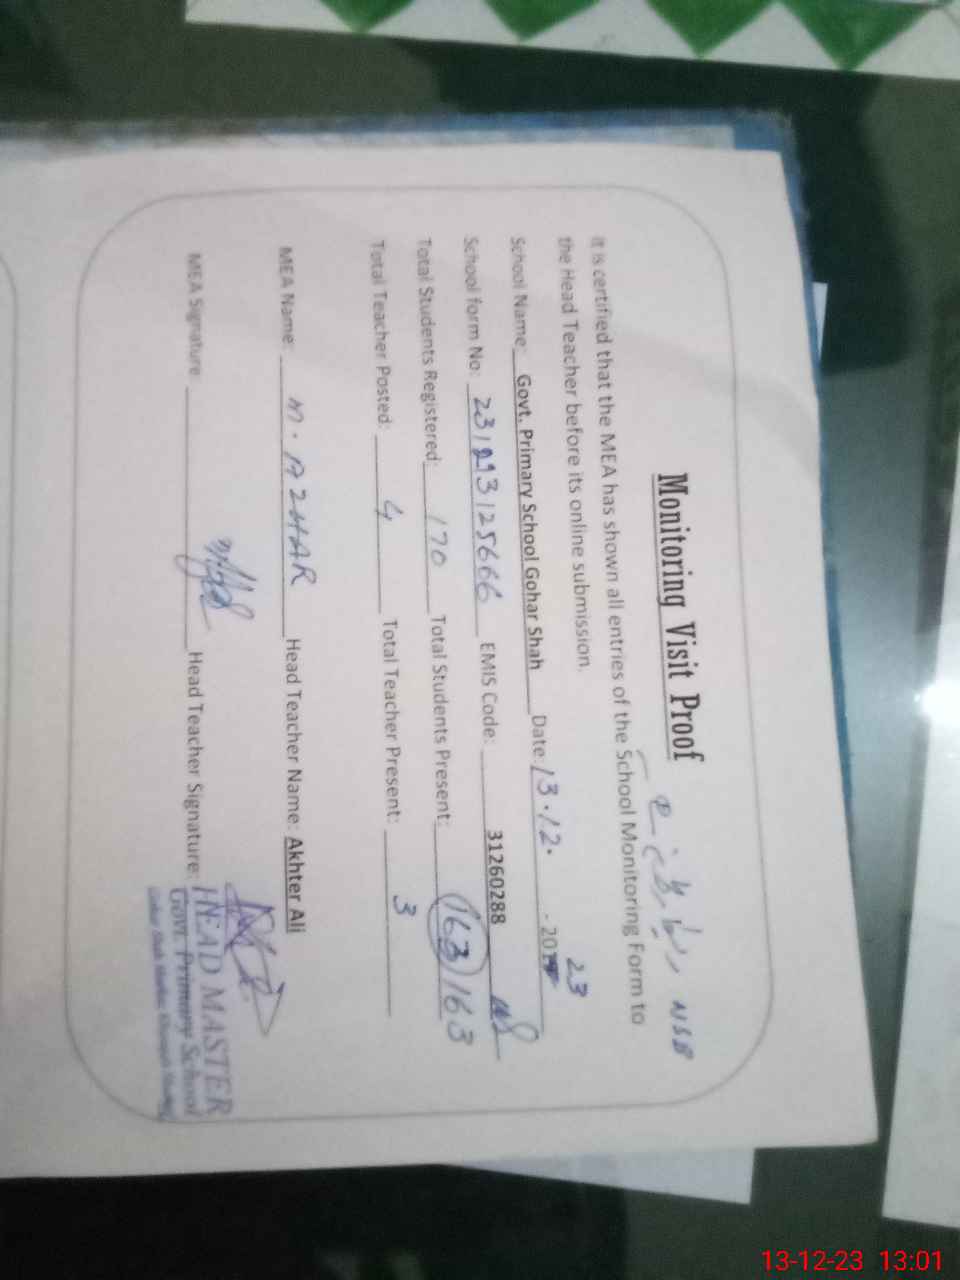 Monitoring Visit Proof
NSB
It is certified that the MEA has shown all entries of the School Monitoring Form to
the Head Teacher before its online submission.
School Name: Govt. Primary School Gohar Shah Date: 13.12. - 2023
School form No: EMIS Code: 31260288
Total Students Registered: 170 Total Students Present: 163/163
Total Teacher Posted: 4 Total Teacher Present: 3
MEA Name: M. AZHAR Head Teacher Name: Akhter Ali
MEA Signature: Head Teacher Signature:
HEAD MASTER
Govt. Primary School
13-12-23 13:01